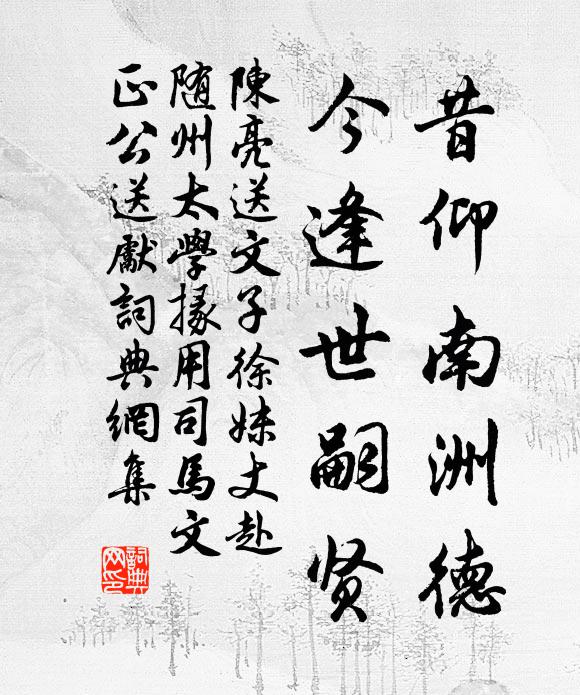 昔仰南洲德
今逢世嗣贤
陳亮送文子徐妹丈赴
随州太學掾用司馬文
正公送獻詞典網集
詞典网印